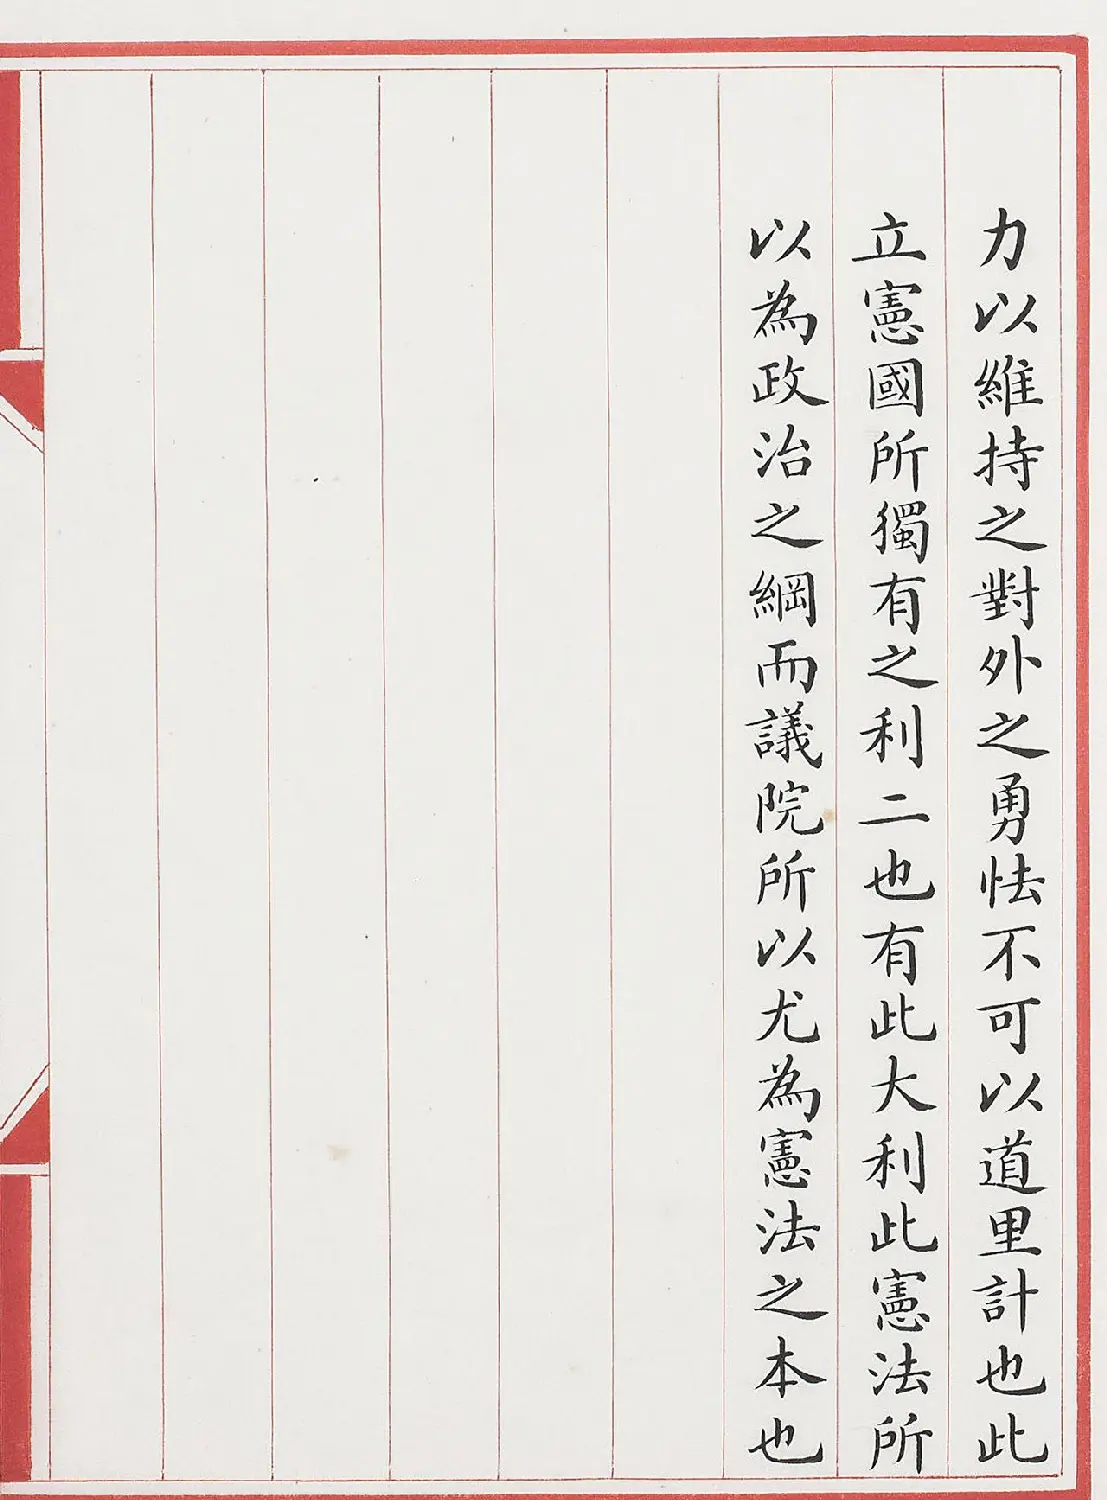 力以維持之對外之勇怯不可以道里計也此
立憲國所獨有之利二也有此大利此憲法所
以為政治之綱而議院所以尤為憲法之本也